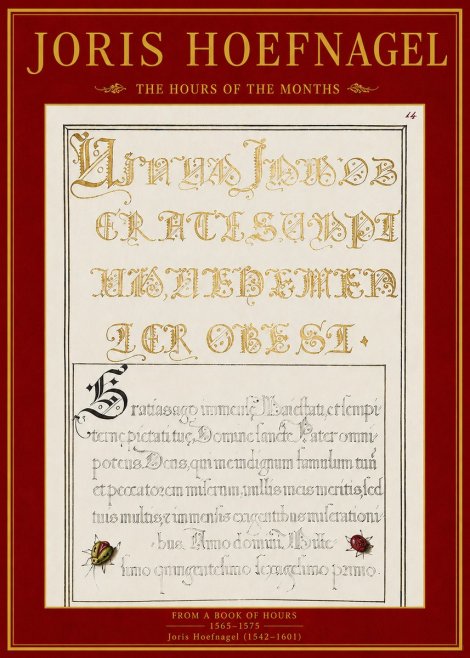 JORIS HOEFNAGEL
THE HOURS OF THE MONTHS
14
ERATE SUMPT
UM, VEHEMEN
TER OBEST
Gratias ago immensę Maiestati, et sempi
ternę pietati tuę, Domine sancte Pater omni
potens Deus, qui me indignum famulum tuū
et peccatorem miserum, nullis meis meritis, sed
tuis multis, et immensis exigentibus miserationi
bus. Anno domini Mille
simo quingentesimo sexagesimo primo.
FROM A BOOK OF HOURS
1565–1575
Joris Hoefnagel (1542–1601)